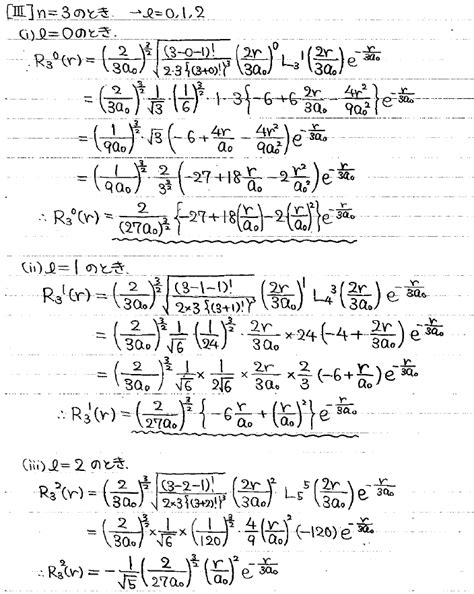 [Ⅲ] n=3のとき. → l=0,1,2
(i) l=0のとき.
R₃⁰(r) = (2/3a₀)^{3/2} √((3-0-1)!/2·3{(3+0)!}³) (2r/3a₀)⁰ L₃¹(2r/3a₀) e^{-r/3a₀}
= (2/3a₀)^{3/2} 1/√3 · (1/6)^{3/2} · 1·3{-6+6·2r/3a₀ - 4r²/9a₀²} e^{-r/3a₀}
= (1/9a₀)^{3/2} · √3 (-6 + 4r/a₀ - 4r²/9a₀²) e^{-r/3a₀}
= (1/9a₀)^{3/2} · 2/3^{3/2} (-27 + 18 r/a₀ - 2 r²/a₀²) e^{-r/3a₀}
∴ R₃⁰(r) = 2/(27a₀)^{3/2} {-27 + 18(r/a₀) - 2(r/a₀)²} e^{-r/3a₀}
(ii) l=1のとき.
R₃¹(r) = (2/3a₀)^{3/2} √((3-1-1)!/2×3{(3+1)!}³) (2r/3a₀)¹ L₄³(2r/3a₀) e^{-r/3a₀}
= (2/3a₀)^{3/2} 1/√6 (1/24)^{3/2} · 2r/3a₀ × 24(-4 + 2r/3a₀) e^{-r/3a₀}
= (2/3a₀)^{3/2} 1/√6 × 1/2√6 × 2r/3a₀ × 2/3 (-6 + r/a₀) e^{-r/3a₀}
∴ R₃¹(r) = (2/27a₀)^{3/2} {-6 r/a₀ + (r/a₀)²} e^{-r/3a₀}
(iii) l=2のとき.
R₃²(r) = (2/3a₀)^{3/2} √((3-2-1)!/2×3{(3+2)!}³) (2r/3a₀)² L₅⁵(2r/3a₀) e^{-r/3a₀}
= (2/3a₀)^{3/2} × 1/√6 × (1/120)^{3/2} · 4/9 (r/a₀)² (-120) e^{-r/3a₀}
∴ R₃²(r) = -1/√5 (2/27a₀)^{3/2} (r/a₀)² e^{-r/3a₀}